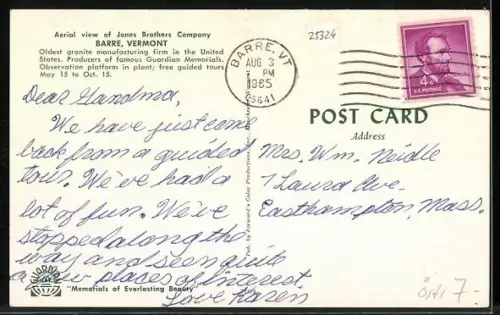 Aerial view of Jones Brothers Company
BARRE, VERMONT
Oldest granite manufacturing firm in the United
States. Producers of famous Guardian Memorials.
Observation platform in plant; free guided tours
May 15 to Oct. 15.
25324
BARRE, VT
AUG 3
PM
1965
05641
4¢
U.S. POSTAGE
POST CARD
Address
Dear Grandma,
We have just come
back from a guided
tour. We've had a
lot of fun. We've
stopped along the
way and seen quite
a few places of interest.
Love Karen
Mrs. Wm. Neidle
7 Laura Ave.
Easthampton, Mass.
GUARDIAN
"Memorials of Everlasting Beauty"
7-